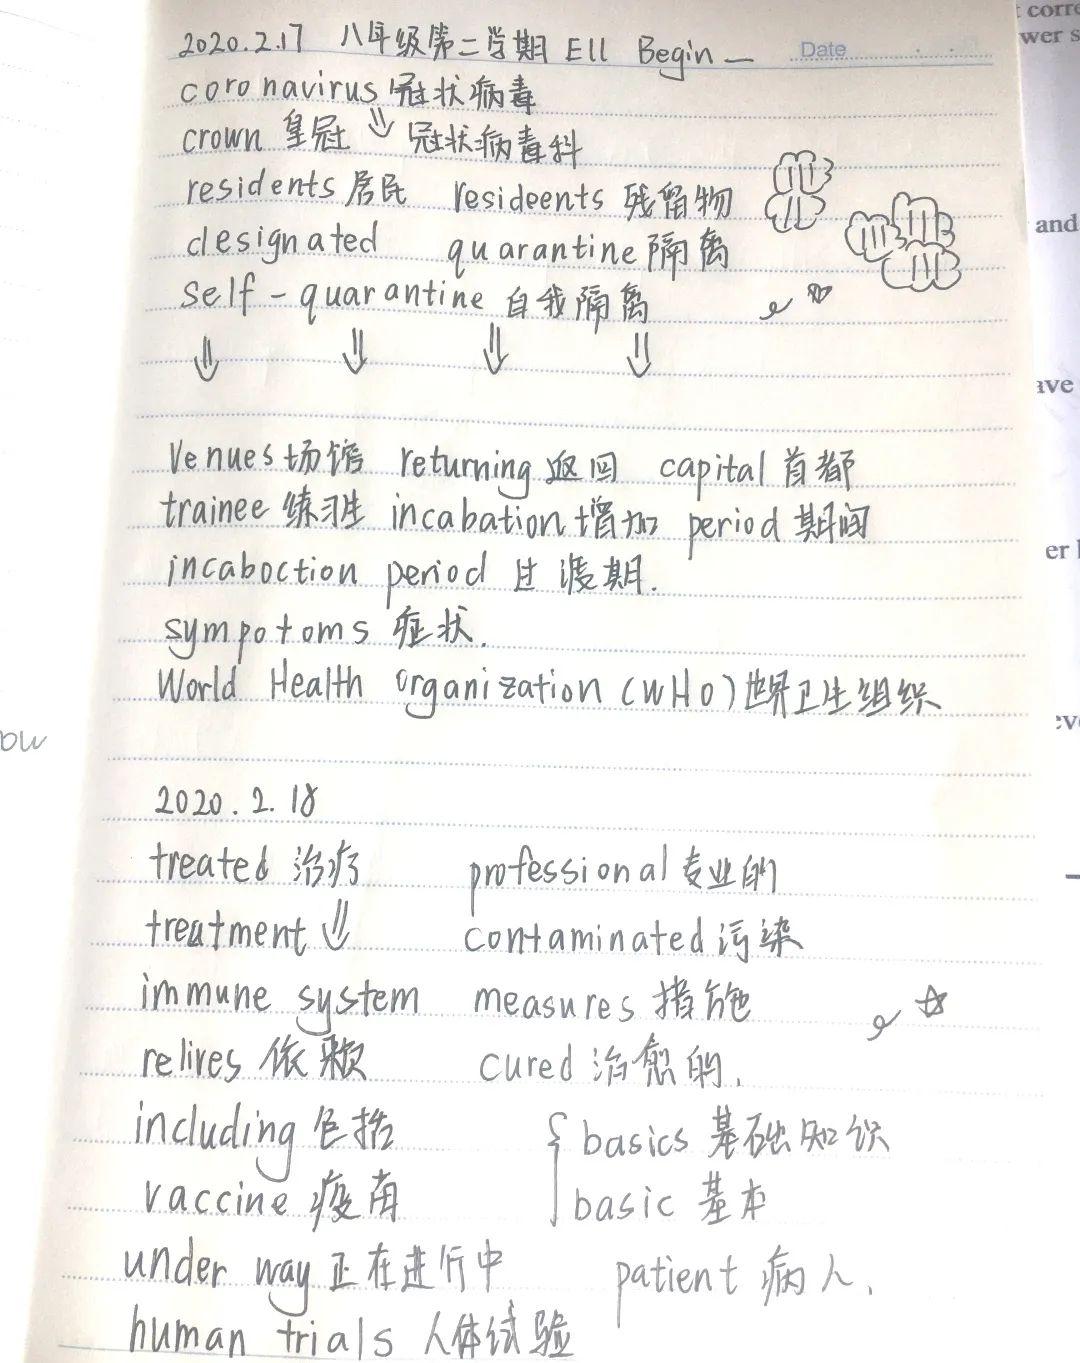 2020.2.17 八年级第二学期 Ell Begin —
Date
coronavirus 冠状病毒
crown 皇冠 ⇓ 冠状病毒科
residents 居民 resideents 残留物
designated quarantine 隔离
self-quarantine 自我隔离
⇓ ⇓ ⇓ ⇓
Venues 场馆 returning 返回 capital 首都
trainee 练习生 incabation 增加 period 期间
incaboction period 过渡期.
sympotoms 症状.
World Health Organization (WHO) 世界卫生组织
2020.2.18
treated 治疗 professional 专业的
treatment ⇓ contaminated 污染
immune system measures 措施
relives 依赖 cured 治愈的.
including 包括 basics 基础知识
vaccine 疫苗 basic 基本
under way 正在进行中 patient 病人.
human trials 人体试验
and
er
ow